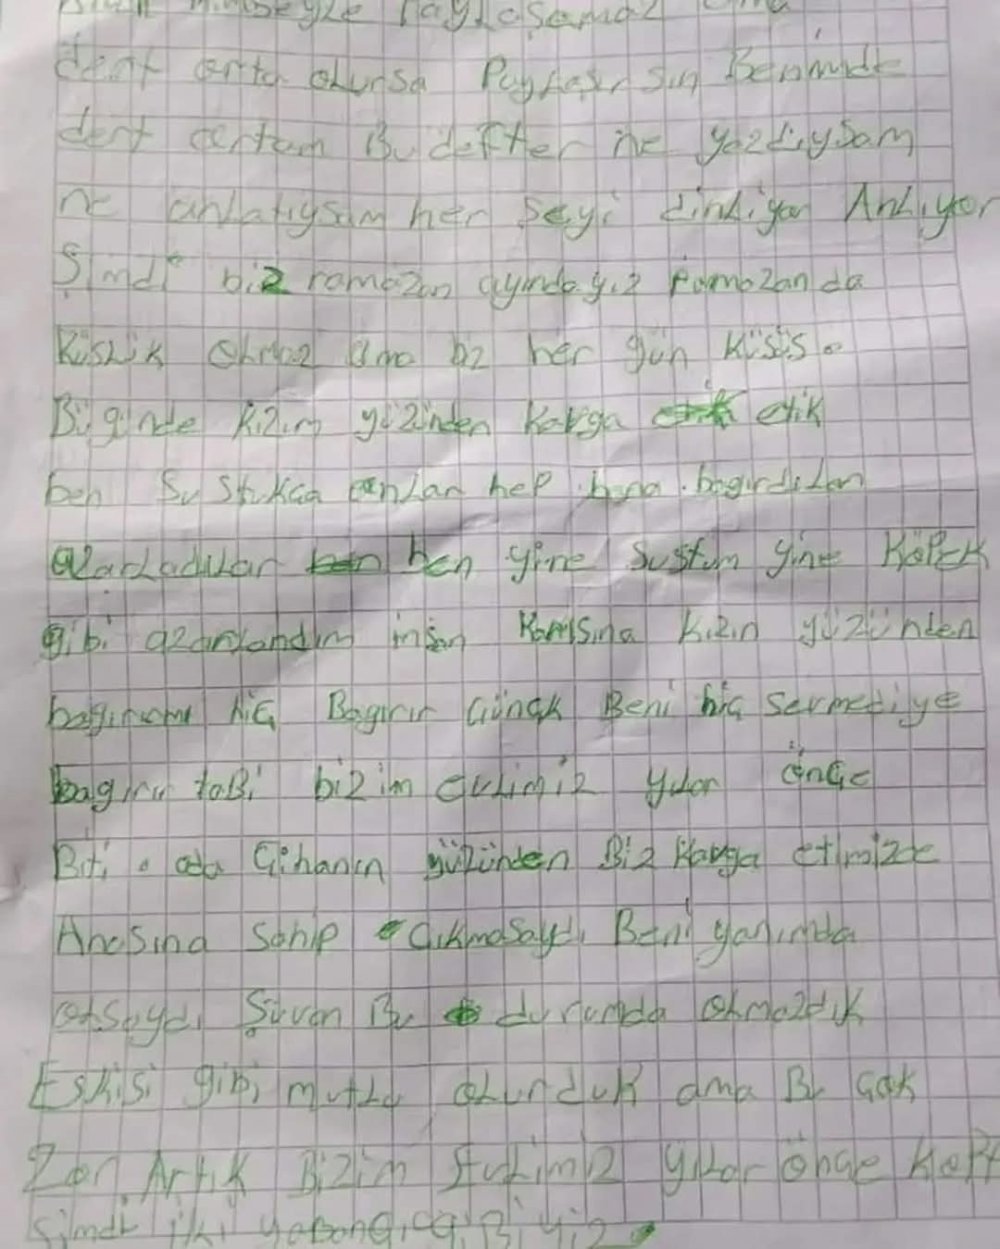 dert orta olursa Paylaşır sın Benimde
dert ortam Bu defter ne yazdıysam
ne anlatıysam her şeyi dinliyor Anlıyor
Şimdi biz ramazan ayındayız Ramazan da
Küslük olmaz ama biz her gün küsüs.
Bü günde kızım yüzünden kavga etik
ben Su stukca onlar hep bana bagırdılar
azarladılar ben yine sustum yine Köpek
gibi azarlandım insan Karısına kızın yüzünden
hiç Bagırır Günck Beni hiç sevmediye
bagırır tabi bizim yılar önce
Biti. oda Cihanın yüzünden Biz Kavga etimizde
Anasına Sahip çıkmasaydı Beni yanımda
olsaydı Şuvan Bu durumda olmazdık
Eskisi gibi mutlu olurduk ama Bu çok
Zor Artık Bizim yılar önce
Şimdi iki yabancı gibiyiz.